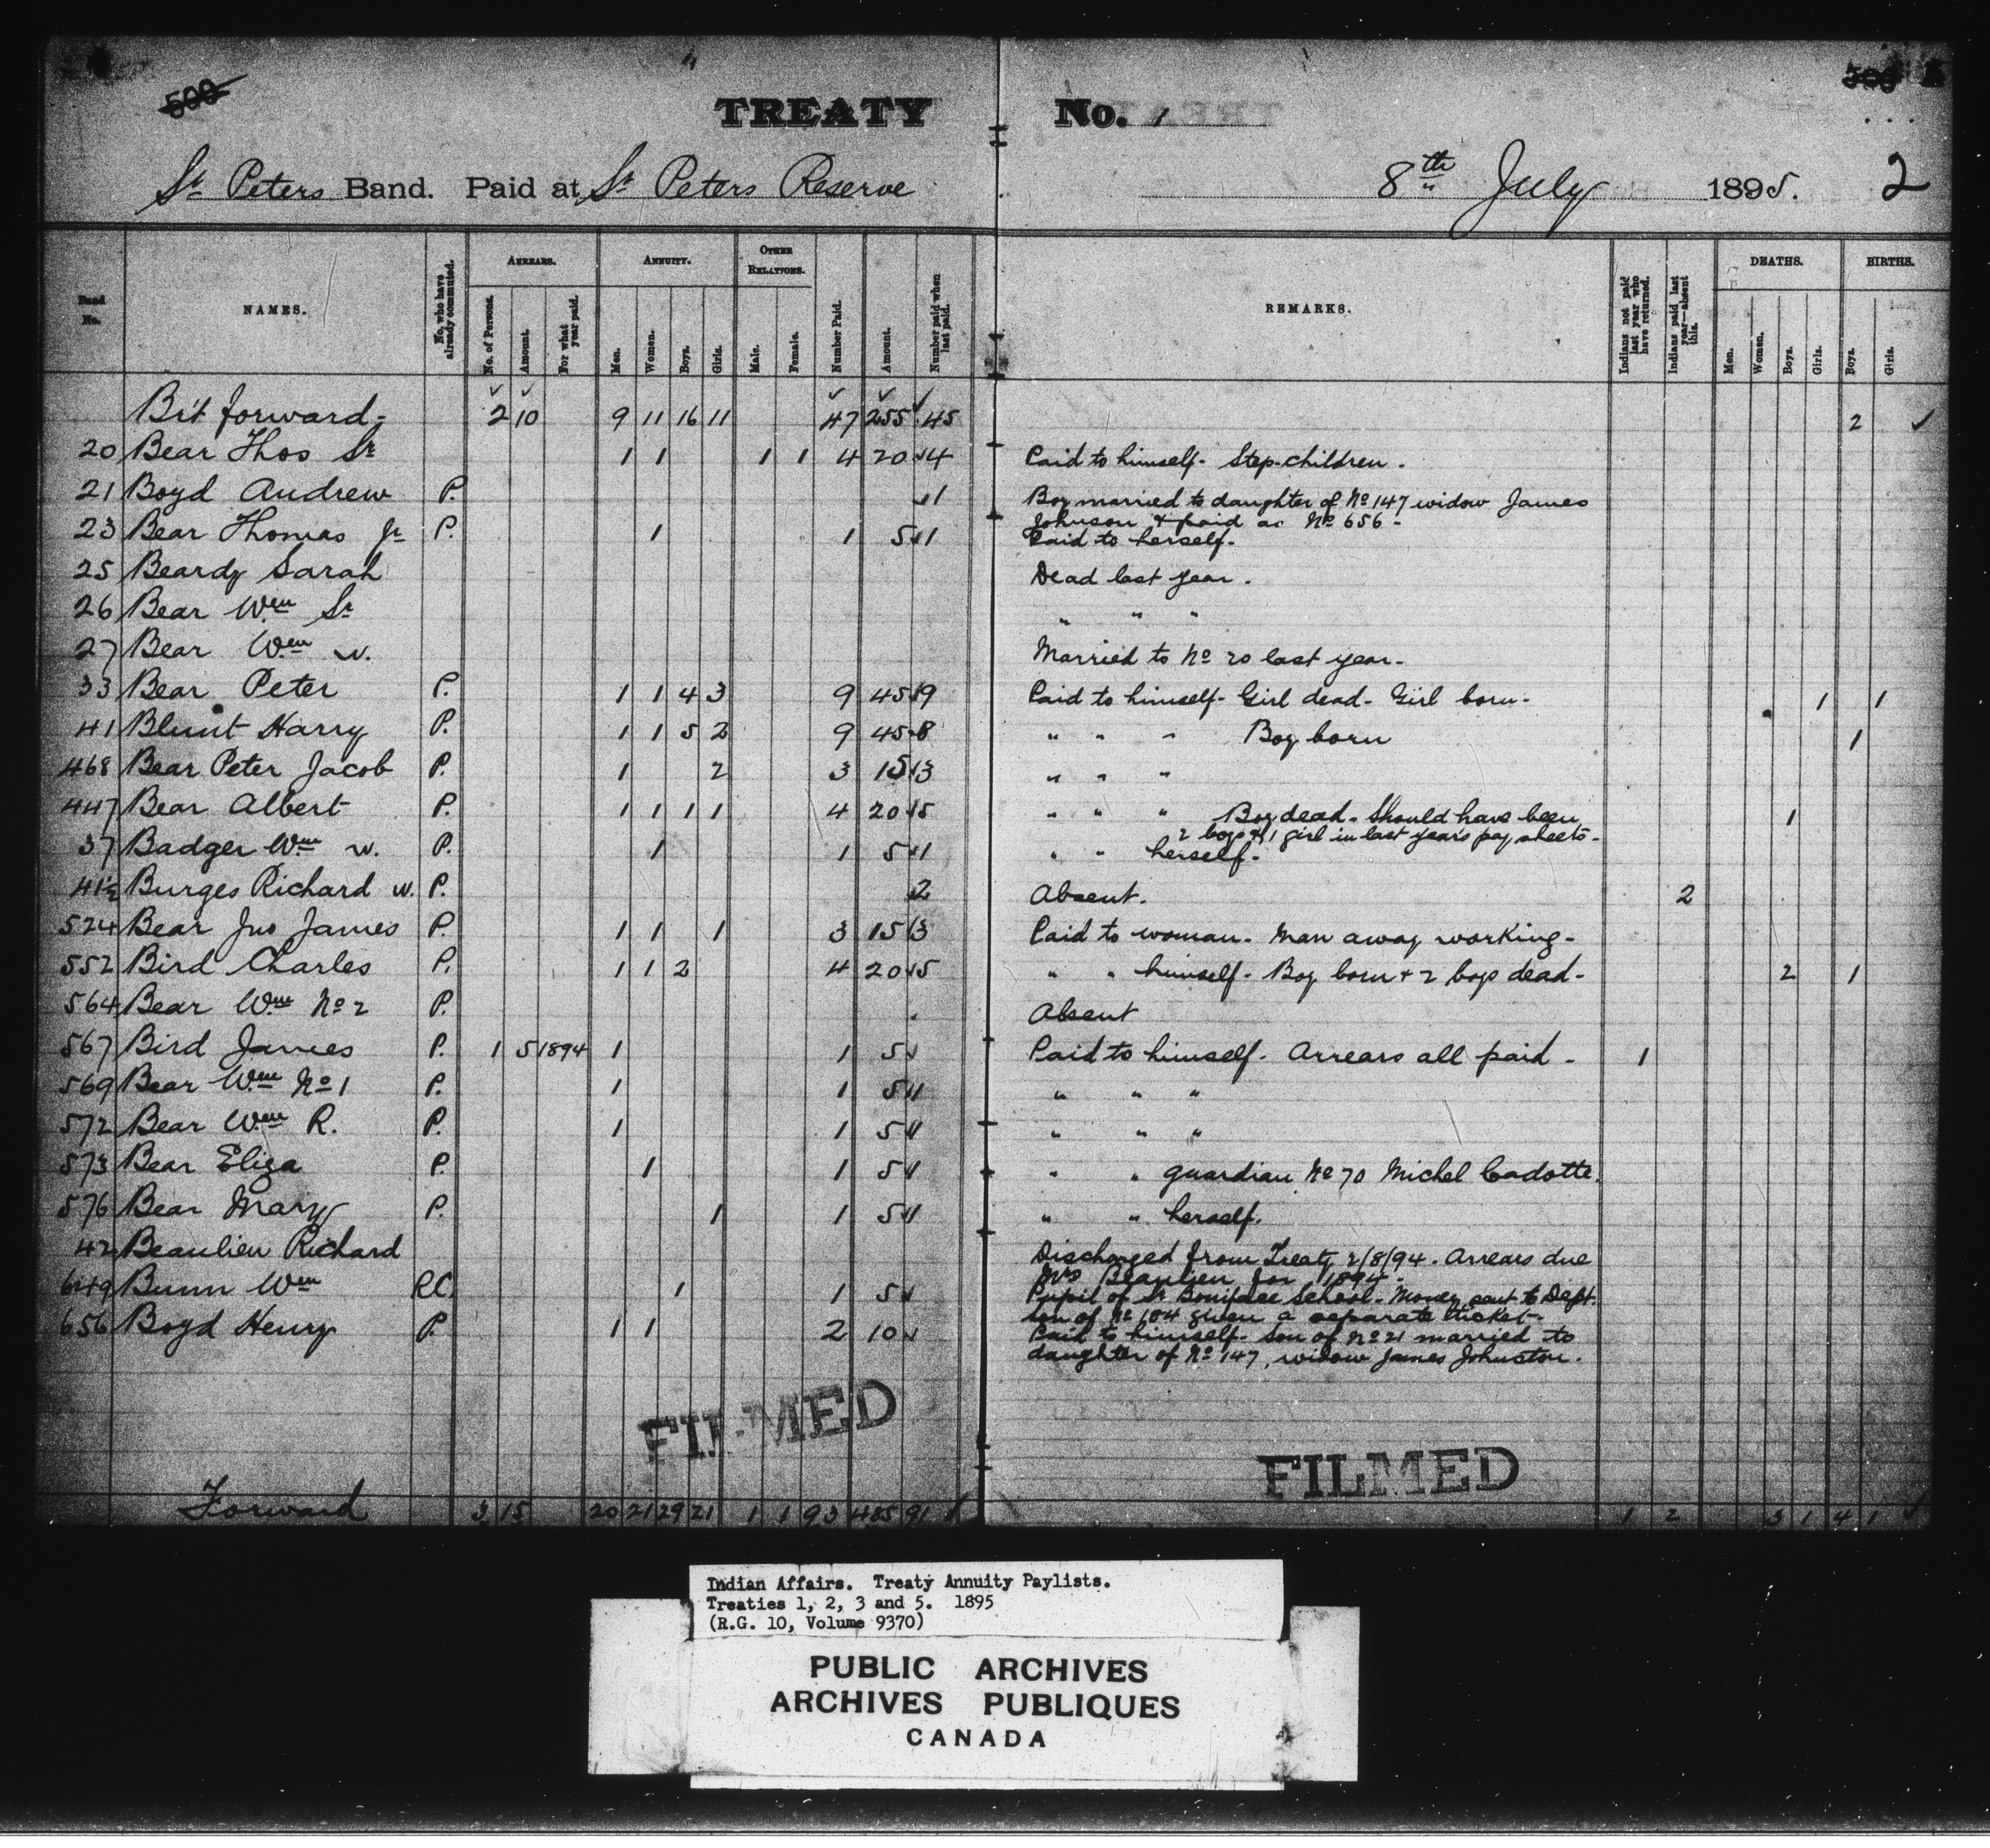 500
TREATY No. 1
St Peters Band. Paid at St Peters Reserve 8th July 1895. 2
Band No.
NAMES.
No. who have already commuted.
ARREARS.
No. of Persons.
Amount.
For what year paid.
ANNUITY.
Men.
Women.
Boys.
Girls.
OTHER RELATIONS.
Male.
Female.
Number Paid.
Amount.
Number paid when last paid.
REMARKS.
Indians not paid last year who have returned.
Indians paid last year—absent this.
DEATHS.
Men.
Women.
Boys.
Girls.
BIRTHS.
Boys.
Girls.
Bt forward - 2 10 9 11 16 11 47 255 45 2
20 Bear Thos Sr 1 1 1 1 4 20 4 Paid to himself - Step-children.
21 Boyd Andrew P. 1 Boy married to daughter of No 147 widow James
Johnson & paid as No 656 -
23 Bear Thomas Jr P. 1 1 5 1 Paid to herself.
25 Beardy Sarah Dead last year.
26 Bear Wm Sr " " "
27 Bear Wm w. Married to No 20 last year.
33 Bear Peter P. 1 1 4 3 9 45 9 Paid to himself - Girl dead - Girl born - 1 1
41 Blunt Harry P. 1 1 5 2 9 45 8 " " " Boy born 1
468 Bear Peter Jacob P. 1 2 3 15 3 " " "
447 Bear Albert P. 1 1 1 1 4 20 5 " " " Boy dead - Should have been 1
2 boys & 1 girl in last year's pay sheets -
37 Badger Wm w. P. 1 1 5 1 " " herself -
41½ Burges Richard w. P. 2 Absent. 2
524 Bear Jno James P. 1 1 1 3 15 3 Paid to woman - Man away working -
552 Bird Charles P. 1 1 2 4 20 5 " " himself - Boy born & 2 boys dead - 2 1
564 Bear Wm No 2 P. Absent
567 Bird James P. 1 5 1894 1 1 5 Paid to himself - Arrears all paid - 1
569 Bear Wm No 1 P. 1 1 5 1 " " "
572 Bear Wm R. P. 1 1 5 1 " " "
573 Bear Eliza P. 1 1 5 1 " " guardian No 70 Michel Cadotte.
576 Bear Mary P. 1 1 5 1 " " herself.
42 Beaulieu Richard Discharged from Treaty 2/8/94. Arrears due
Mrs Beaulieu for 1894 -
649 Bunn Wm RC. 1 1 5 Pupil of St Boniface School - Money sent to Dept.
son of No 104 given a separate ticket -
656 Boyd Henry P. 1 1 2 10 Paid to himself - Son of No 21 married to
daughter of No 147, widow James Johnston.
FILMED
FILMED
Forward 3 15 20 21 29 21 1 1 93 485 91 1 2 3 1 4 1
Indian Affairs. Treaty Annuity Paylists.
Treaties 1, 2, 3 and 5. 1895
(R.G. 10, Volume 9370)
PUBLIC ARCHIVES
ARCHIVES PUBLIQUES
CANADA